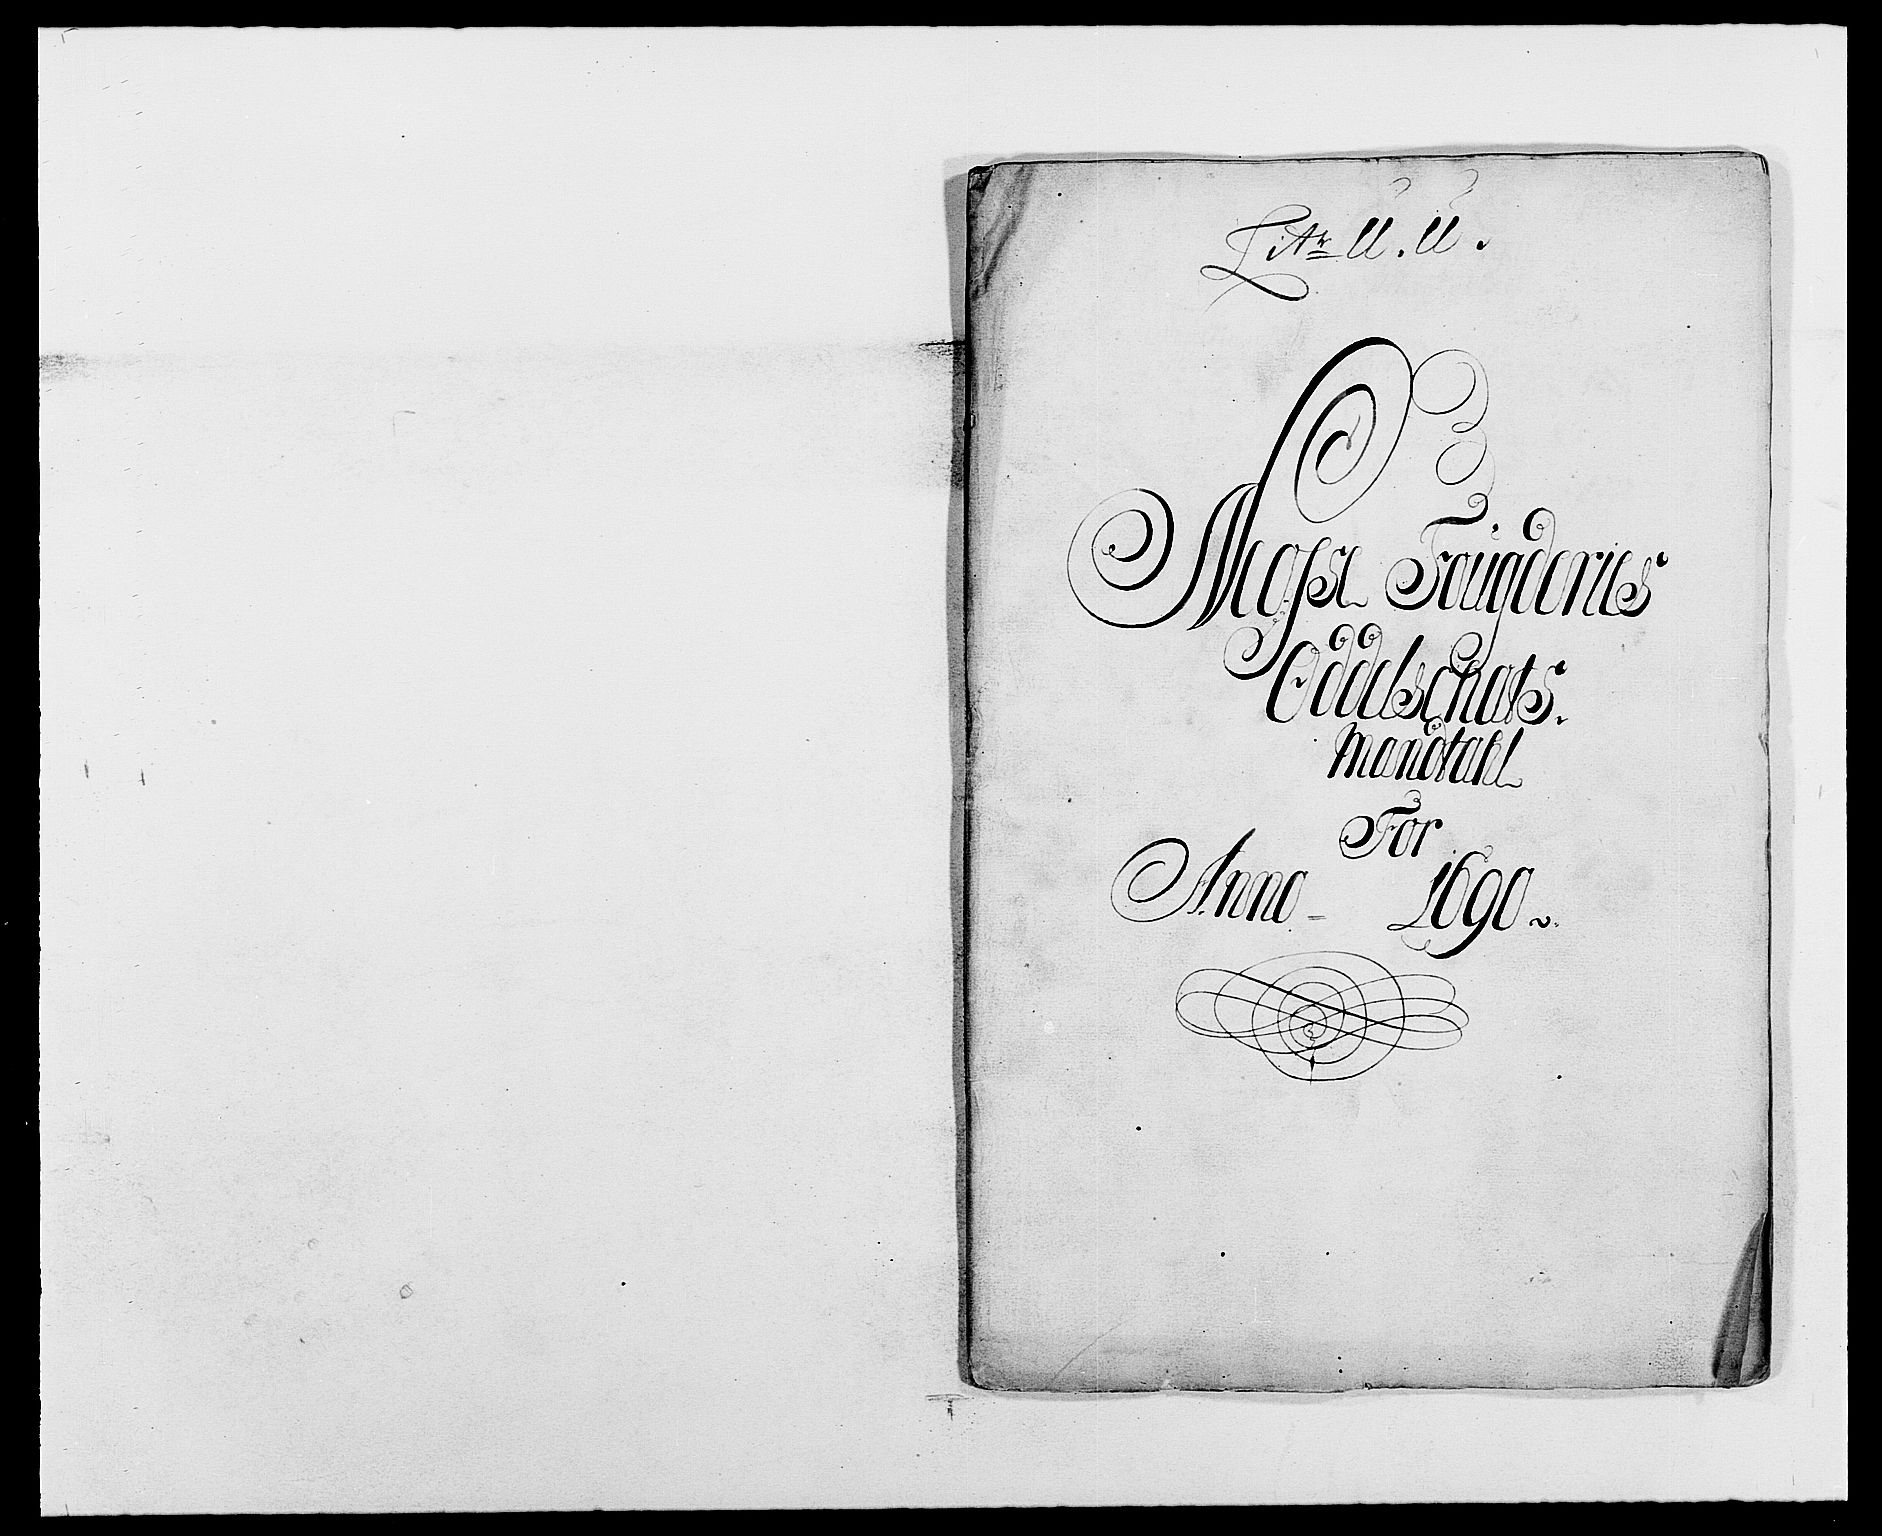 Litr U. U.
Mosse Fougderies
Oddelschats.
Mandtahl
For
Anno - 1690.